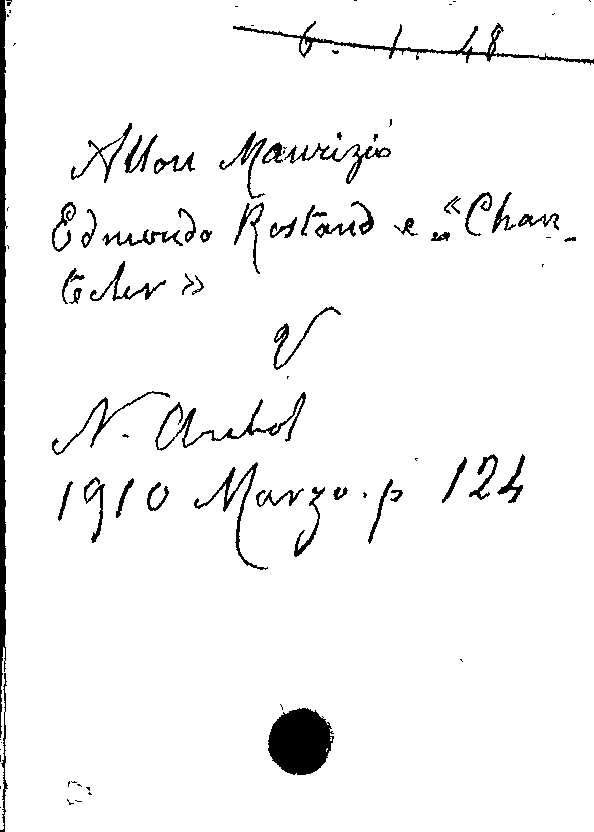 6. 1. 48
Allou Maurizio
Edmondo Rostand e «Chan-
tecler»
V
N. Antol
1910 Marzo. p 124